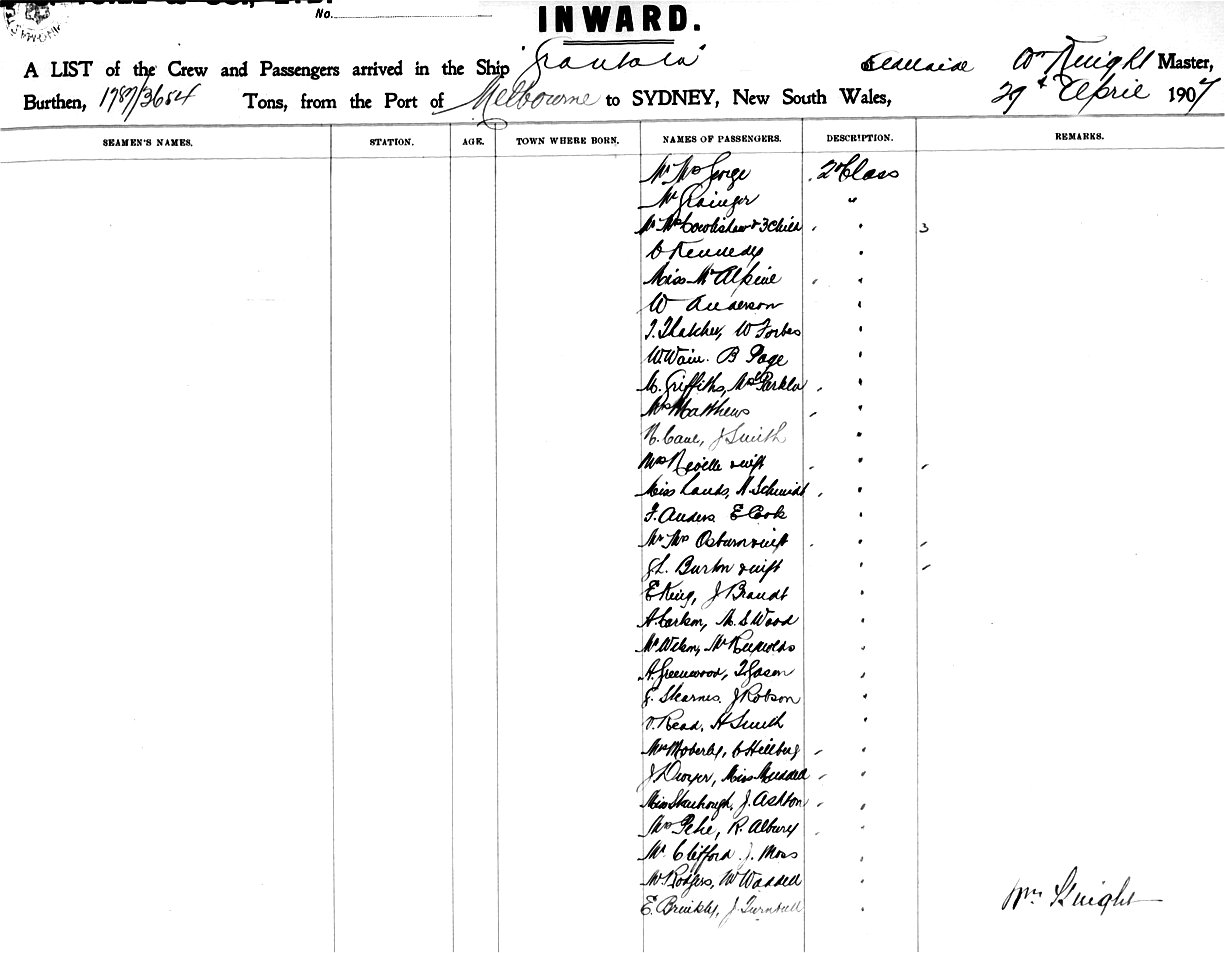 No.
INWARD.
A LIST of the Crew and Passengers arrived in the Ship "Grantala" Adelaide Wm Knight Master,
Burthen, 1787/3654 Tons, from the Port of Melbourne to SYDNEY, New South Wales, 29 April 1907
SEAMEN'S NAMES. STATION. AGE. TOWN WHERE BORN. NAMES OF PASSENGERS. DESCRIPTION. REMARKS.
Mr Mrs George 2nd Class
Mr Grainger "
Mr Mrs Cowlishaw & 3 Child " 3
Kennedy "
Miss McAlpine "
W Anderson "
T. Thatcher, W Forbes "
W. Wain. B Page "
M. Griffiths, "
Mrs Matthews "
H. Cane, J Smith "
Mrs Neville & inft "
Miss Lauds, H. Schmidt "
F. Anders E Cook "
Mr Mrs Osburn & inft "
J L. Burton & inft "
E King, J Brandt "
A. Carlson, M. S Wood "
Mr Wilson, Mr Reynolds "
A. Greenwood, "
J. Stearnes. J Robson "
V. Read, H Smith "
Mrs Moberly, "
J Dwyer, Miss "
Miss J. Ashton "
Mrs R. Albury "
Mr Clifford J. Moss "
Mr Rodgers, W Waddell "
E. Brinkly, J. Turnbull "
Wm Knight